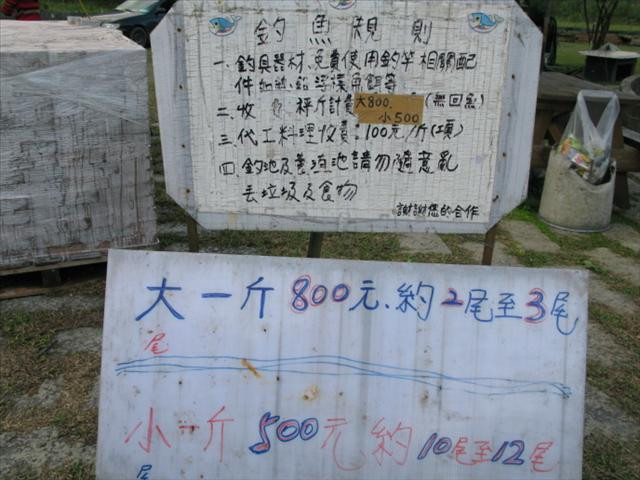 釣魚規則
一、釣具器材、免費使用釣竿相關配
件如鉤、鉛浮標魚餌等
二、收 秤斤計費大800.(無回魚)
小500
三、代工料理收費:100元/斤(項)
四、釣池及養殖池請勿隨意亂
丟垃圾及食物
謝謝您的合作
大一斤800元.約2尾至3尾
尾
小一斤500元約10尾至12尾
尾